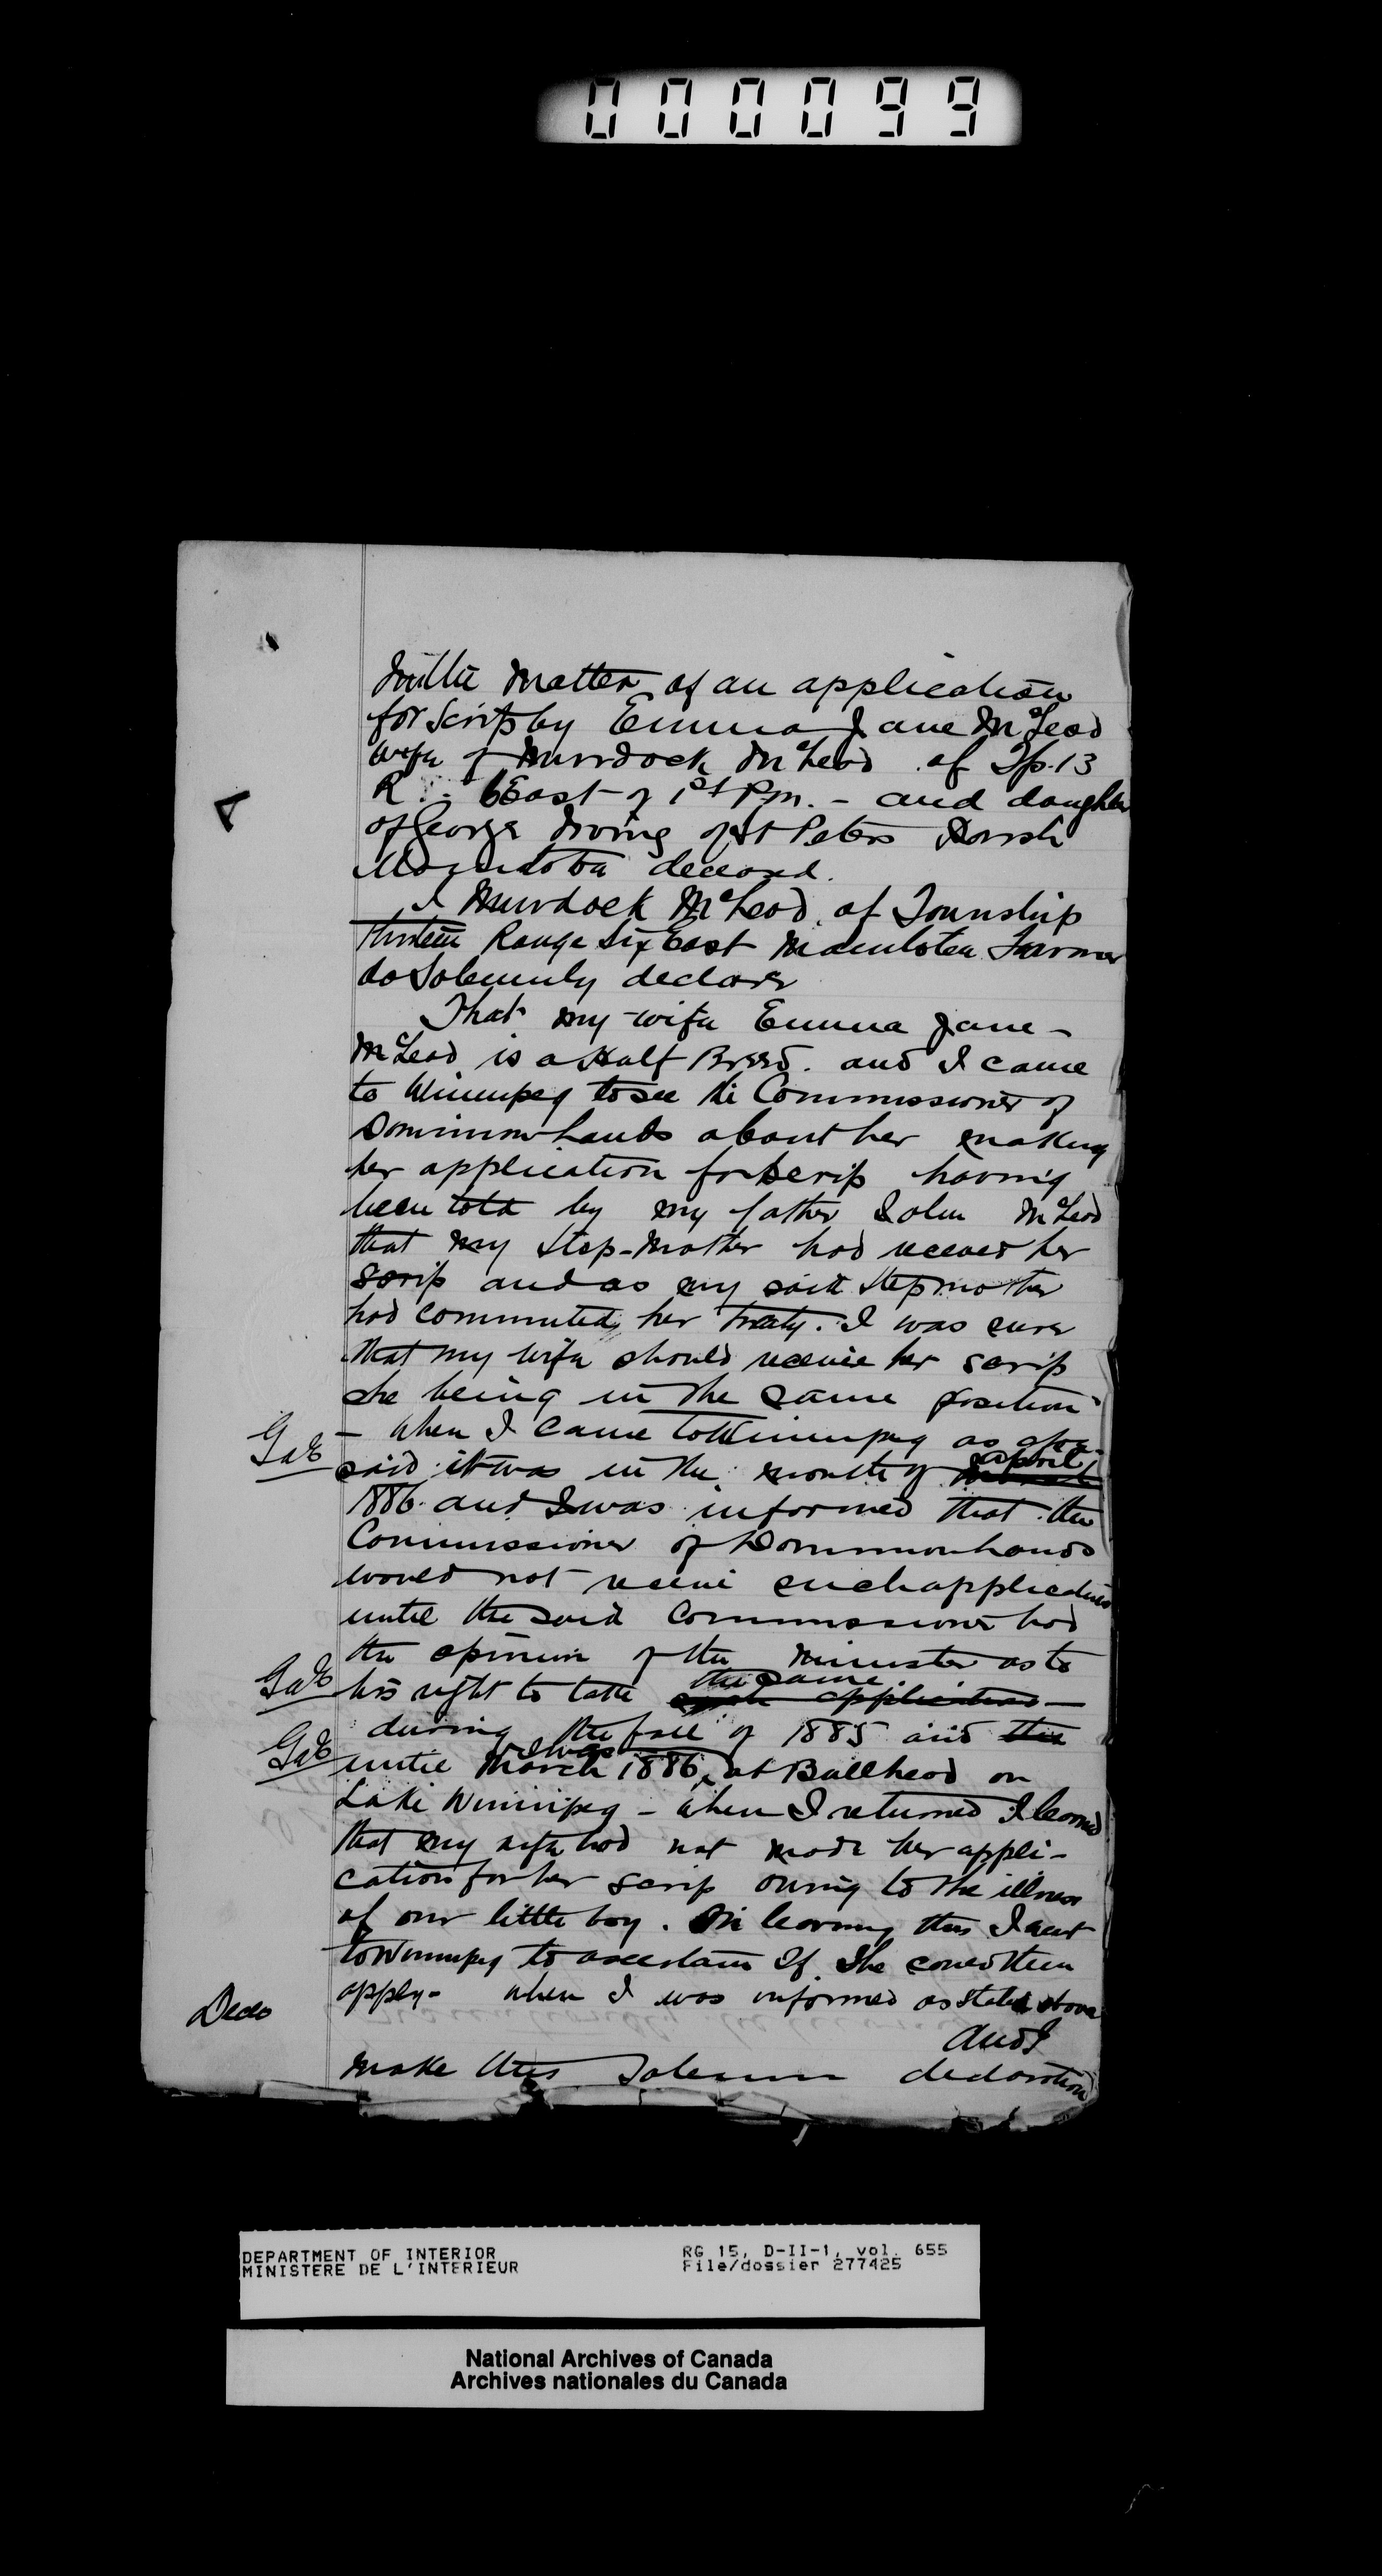 000099
In the Matter of an application
for Scrip by Emma Jane McLeod
wife of Murdock McLeod of Tp. 13
R. 6 East of 1st P.m. - and daughter
of George Irving of St Peters Parish
Manitoba deceased.
A
I Murdock McLeod of Township
Thirteen Range Six East Manitoba Farmer
do Solemnly declare
That my wife Emma Jane -
McLeod is a Half Breed. and I came
to Winnipeg to see the Commissioner of
Dominion Lands about her making
her application for Scrip having
been told by my father John McLeod
that my Step-Mother had received her
Scrip and as my said Stepmother
had commuted her Treaty. I was sure
that my wife should receive her scrip
she being in the same position
- When I came to Winnipeg as afore-
said it was in the month of April
1886. and I was informed that the
Commissioner of Dominion Lands
would not receive such applications
until the said Commissioner had
the opinion of the Minister as to
his right to take the same such application -
during the fall of 1885 and the
until March 1886, I was at Bullhead on
Lake Winnipeg - when I returned I learned
that my wife had not made her appli-
cation for her scrip owing to the illness
of our little boy. On learning this I went
to Winnipeg to ascertain If She could then
apply - when I was informed as stated above
And I
make this Solemn declaration
DEPARTMENT OF INTERIOR
MINISTERE DE L'INTERIEUR
RG 15, D-II-1, vol. 655
File/dossier 277425
National Archives of Canada
Archives nationales du Canada